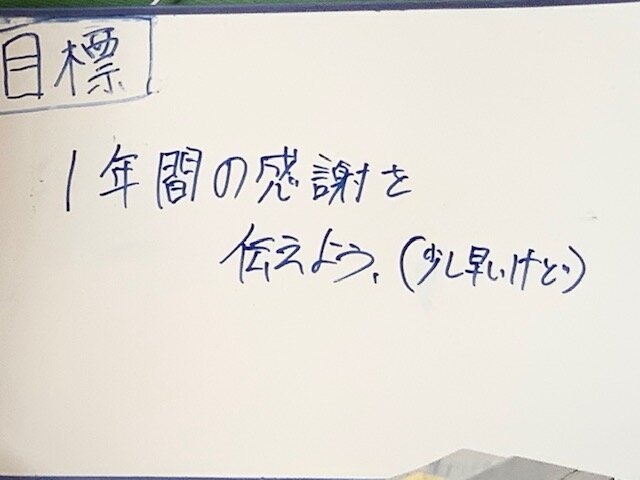 目標
1年間の感謝を
伝えよう、(少し早いけど)